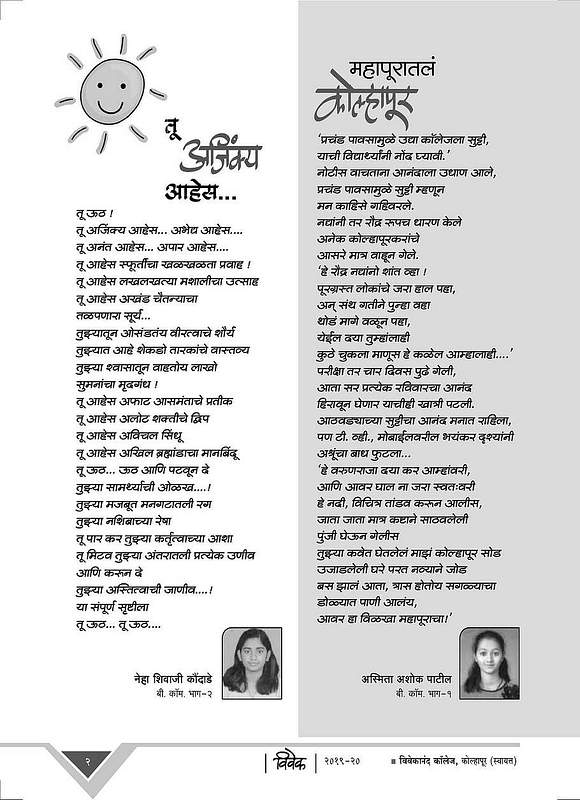 तू
अजिंक्य
आहेस...
तू ऊठ !
तू अजिंक्य आहेस... अभेद्य आहेस....
तू अनंत आहेस... अपार आहेस....
तू आहेस स्फूर्तीचा खळखळता प्रवाह !
तू आहेस लखलखत्या मशालीचा उत्साह
तू आहेस अखंड चैतन्याचा
तळपणारा सूर्य...
तुझ्यातून ओसंडतंय वीरत्वाचे शौर्य
तुझ्यात आहे शेकडो तारकांचे वास्तव्य
तुझ्या श्वासातून वाहतोय लाखो
सुमनांचा मृदगंध !
तू आहेस अफाट आसमंताचे प्रतीक
तू आहेस अलोट शक्तीचे द्विप
तू आहेस अविचल सिंधू
तू आहेस अखिल ब्रह्मांडाचा मानबिंदू
तू ऊठ... ऊठ आणि पटवून दे
तुझ्या सामर्थ्याची ओळख....!
तुझ्या मजबूत मनगटातली रग
तुझ्या नशिबाच्या रेषा
तू पार कर तुझ्या कर्तृत्वाच्या आशा
तू मिटव तुझ्या अंतरातली प्रत्येक उणीव
आणि करून दे
तुझ्या अस्तित्वाची जाणीव....!
या संपूर्ण सृष्टीला
तू ऊठ... तू ऊठ....
नेहा शिवाजी कौंदाडे
बी. कॉम. भाग-२
महापूरातलं
कोल्हापूर
'प्रचंड पावसामुळे उद्या कॉलेजला सुट्टी,
याची विद्यार्थ्यांनी नोंद घ्यावी.'
नोटीस वाचताना आनंदाला उधाण आले,
प्रचंड पावसामुळे सुट्टी म्हणून
मन काहिसे गहिवरले.
नद्यांनी तर रौद्र रूपच धारण केले
अनेक कोल्हापूरकरांचे
आसरे मात्र वाहून गेले.
'हे रौद्र नद्यांनो शांत व्हा !
पूरग्रस्त लोकांचे जरा हाल पहा,
अन् संथ गतीने पुन्हा वहा
थोडं मागे वळून पहा,
येईल दया तुम्हांलाही
कुठे चुकला माणूस हे कळेल आम्हालाही....'
परीक्षा तर चार दिवस पुढे गेली,
आता सर प्रत्येक रविवारचा आनंद
हिरावून घेणार याचीही खात्री पटली.
आठवड्याच्या सुट्टीचा आनंद मनात राहिला,
पण टी. व्ही., मोबाईलवरील भयंकर दृश्यांनी
अश्रूंचा बाध फुटला...
'हे वरुणराजा दया कर आम्हांवरी,
आणि आवर घाल ना जरा स्वतःवरी
हे नदी, विचित्र तांडव करून आलीस,
जाता जाता मात्र कष्टाने साठवलेली
पुंजी घेऊन गेलीस
तुझ्या कवेत घेतलेलं माझं कोल्हापूर सोड
उजाडलेली घरे परत नव्याने जोड
बस झालं आता, त्रास होतोय सगळ्याचा
डोळ्यात पाणी आलंय,
आवर हा विळखा महापूराचा!'
अस्मिता अशोक पाटील
बी. कॉम. भाग-१
२
विवेक
२०१९-२०
■ विवेकानंद कॉलेज, कोल्हापूर (स्वायत्त)